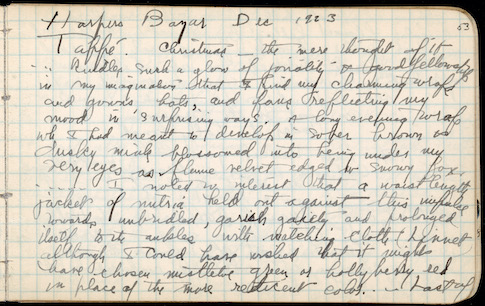 Harpers Bazar Dec 1923
63
Tappé. Christmas — the mere thought of it
... kindles such a glow of joviality & good fellowship
in my imagination that I find my charming wraps
and gowns, hats, and furs reflecting my
mood in surprising ways. A long evening wrap
wh I had meant to develop in sober brown or
dusky mink blossomed into being under my
very eyes as flame velvet edged in snowy fox.
...... I noted w interest that a waist length
jacket of nutria held out against this impulse
towards unbridled, garish gaiety and prolonged
itself to its ankles with matching cloth
although I could have wished that it might
have chosen mistletoe green or holly berry red
in place of the more reticent color. ...